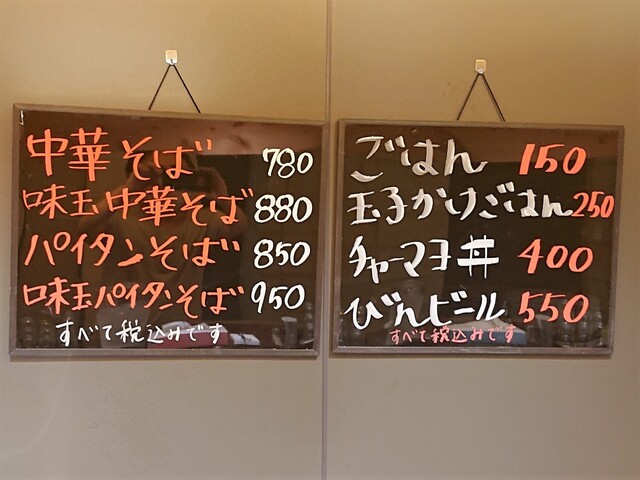 中華そば 780
味玉中華そば 880
パイタンそば 850
味玉パイタンそば 950
すべて税込みです
ごはん 150
玉子かけごはん 250
チャーマヨ丼 400
びんビール 550
すべて税込みです